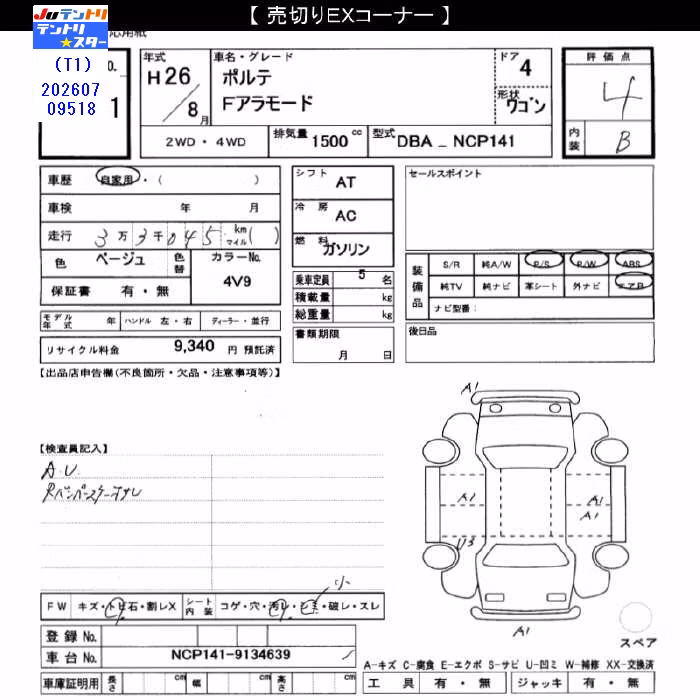 【 売切りEXコーナー 】
JUテントリ
テントリ★スター
(T1)
202607
09518
応用紙
O.
1
年式
H26
/8月
車名・グレード
ポルテ
Fアラモード
ドア
4
形状
ワゴン
評価点
4
内装 B
2WD・4WD
排気量 1500 cc
型式 DBA _ NCP141
車歴 自家用・( )
車検 年 月
走行 3万3千045 km マイル( )
色 ベージュ 色替
カラーNo. 4V9
保証書 有・無
モデル年式 年 ハンドル 左・右 ディーラー・並行
リサイクル料金 9,340 円 預託済
シフト AT
冷房 AC
燃料 ガソリン
乗車定員 5 名
積載量 kg
総重量 kg
書類期限
月 日
セールスポイント
装備品
S/R 純A/W P/S P/W ABS
純TV 純ナビ 革シート 外ナビ エアB
ナビ型番:
後日品
【出品店申告欄(不良箇所・欠品・注意事項等)】
【検査員記入】
A.U.
A1
A1
A1
A1
U3
A1
小
FW キズ・トビ石・割レX シート内装 コゲ・穴・汚レ・シミ・破レ・スレ
登録No.
車台No. NCP141-9134639
車庫証明用 長さ cm 幅 cm 高さ cm
スペア
A-キズ C-腐食 E-エクボ S-サビ U-凹ミ W-補修 XX-交換済
工具 有・無 ジャッキ 有・無